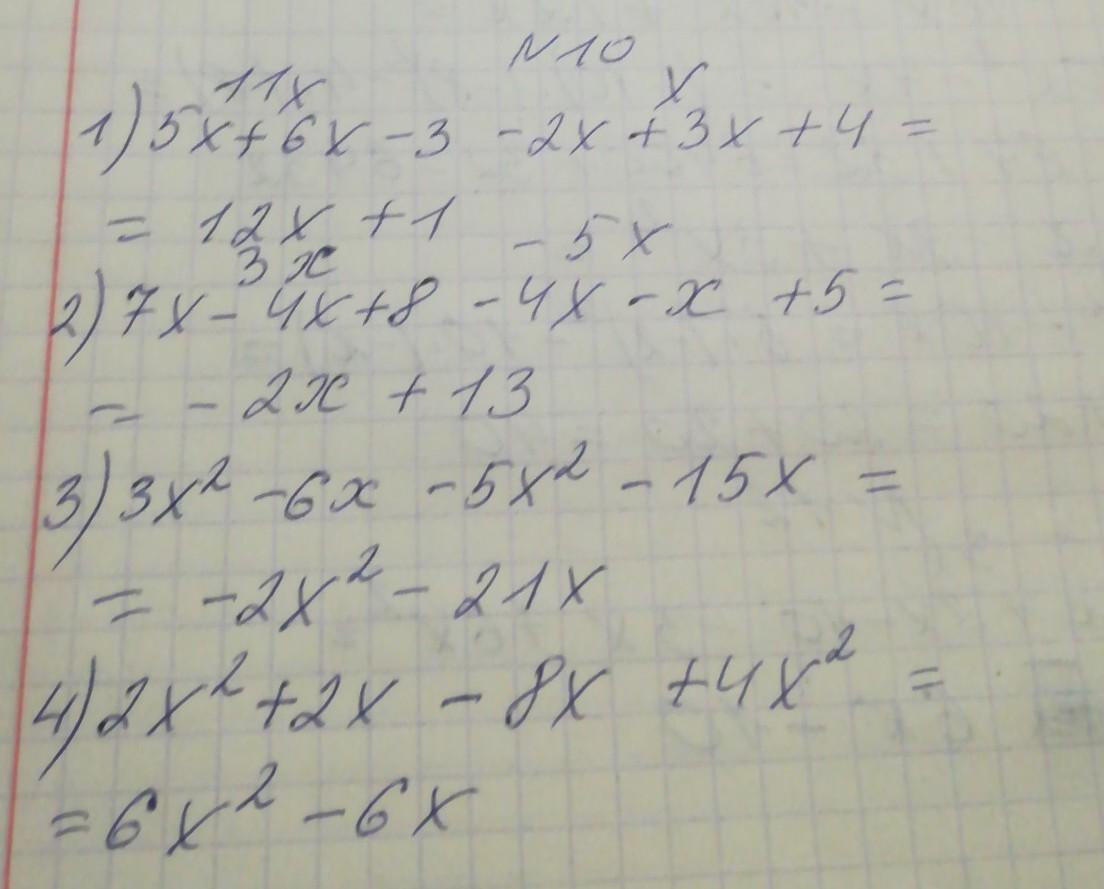 N10
11x x
1) 5x + 6x - 3 - 2x + 3x + 4 =
= 12x + 1
3x - 5x
2) 7x - 4x + 8 - 4x - x + 5 =
= - 2x + 13
3) 3x² - 6x - 5x² - 15x =
= -2x² - 21x
4) 2x² + 2x - 8x + 4x² =
= 6x² - 6x